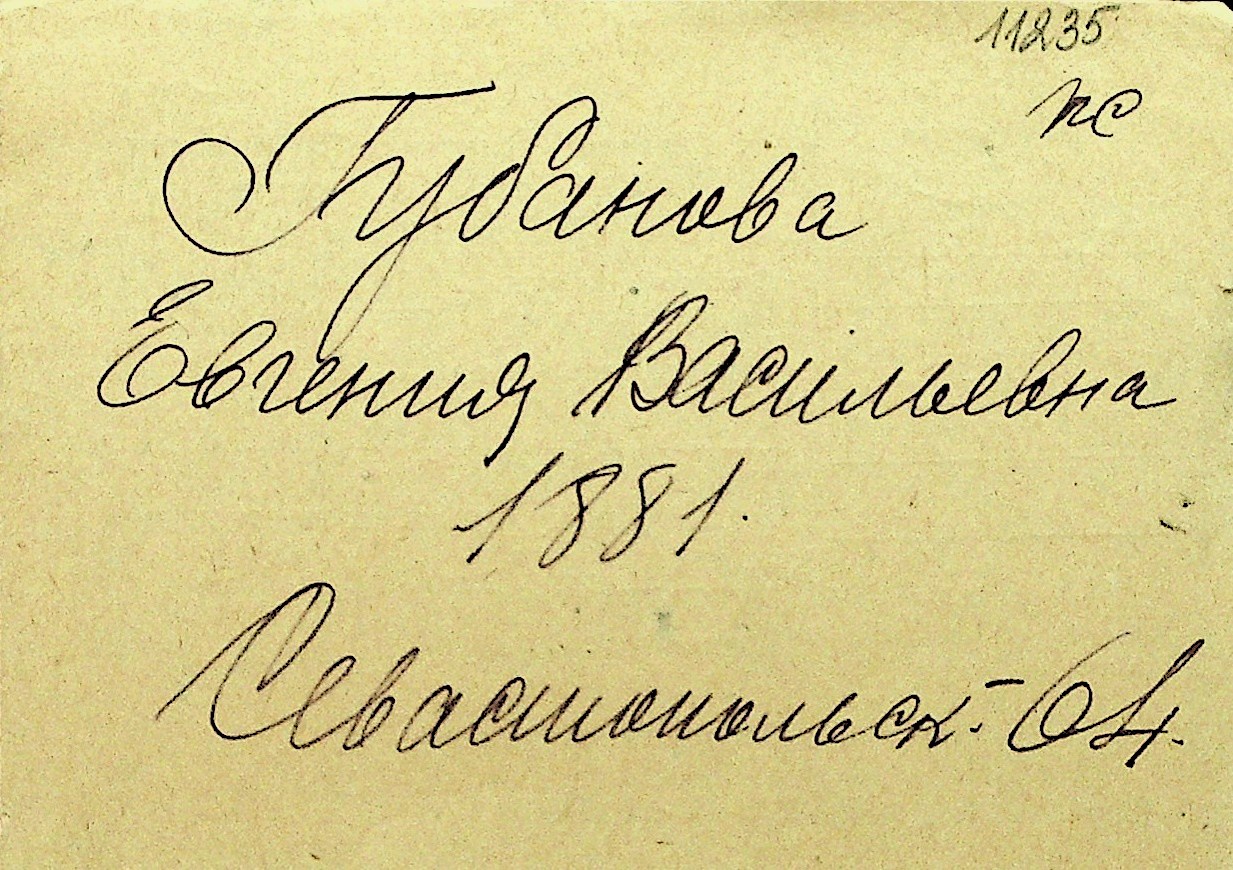 11235
пс
Губанова
Евгения Васильевна
1881.
Севастопольск.- 64.